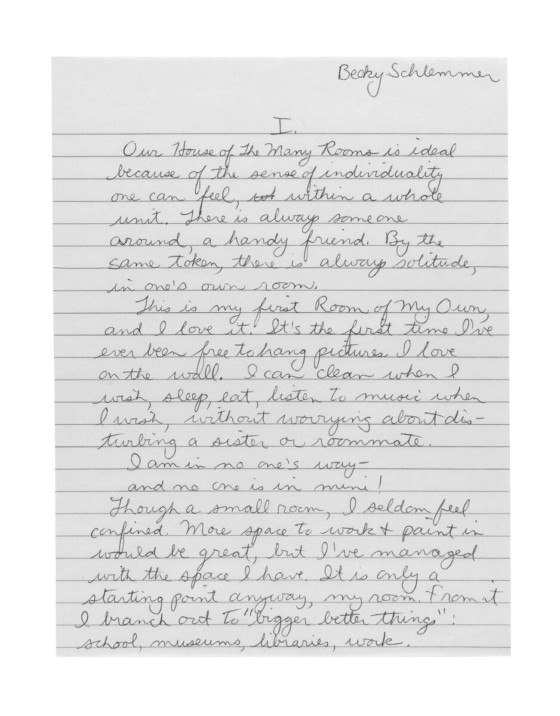 Becky Schlemmer
I.
Our House of the Many Rooms is ideal
because of the sense of individuality
one can feel, within a whole
unit. There is always someone
around, a handy friend. By the
same token, there is always solitude,
in one's own room.
This is my first Room of My Own,
and I love it. It's the first time I've
ever been free to hang pictures I love
on the wall. I can clean when I
wish, sleep, eat, listen to music when
I wish, without worrying about dis-
turbing a sister or roommate.
I am in no one's way-
and no one is in mine!
Though a small room, I seldom feel
confined. More space to work & paint in
would be great, but I've managed
with the space I have. It is only a
starting point anyway, my room. From it
I branch out to "bigger better things":
school, museums, libraries, work.